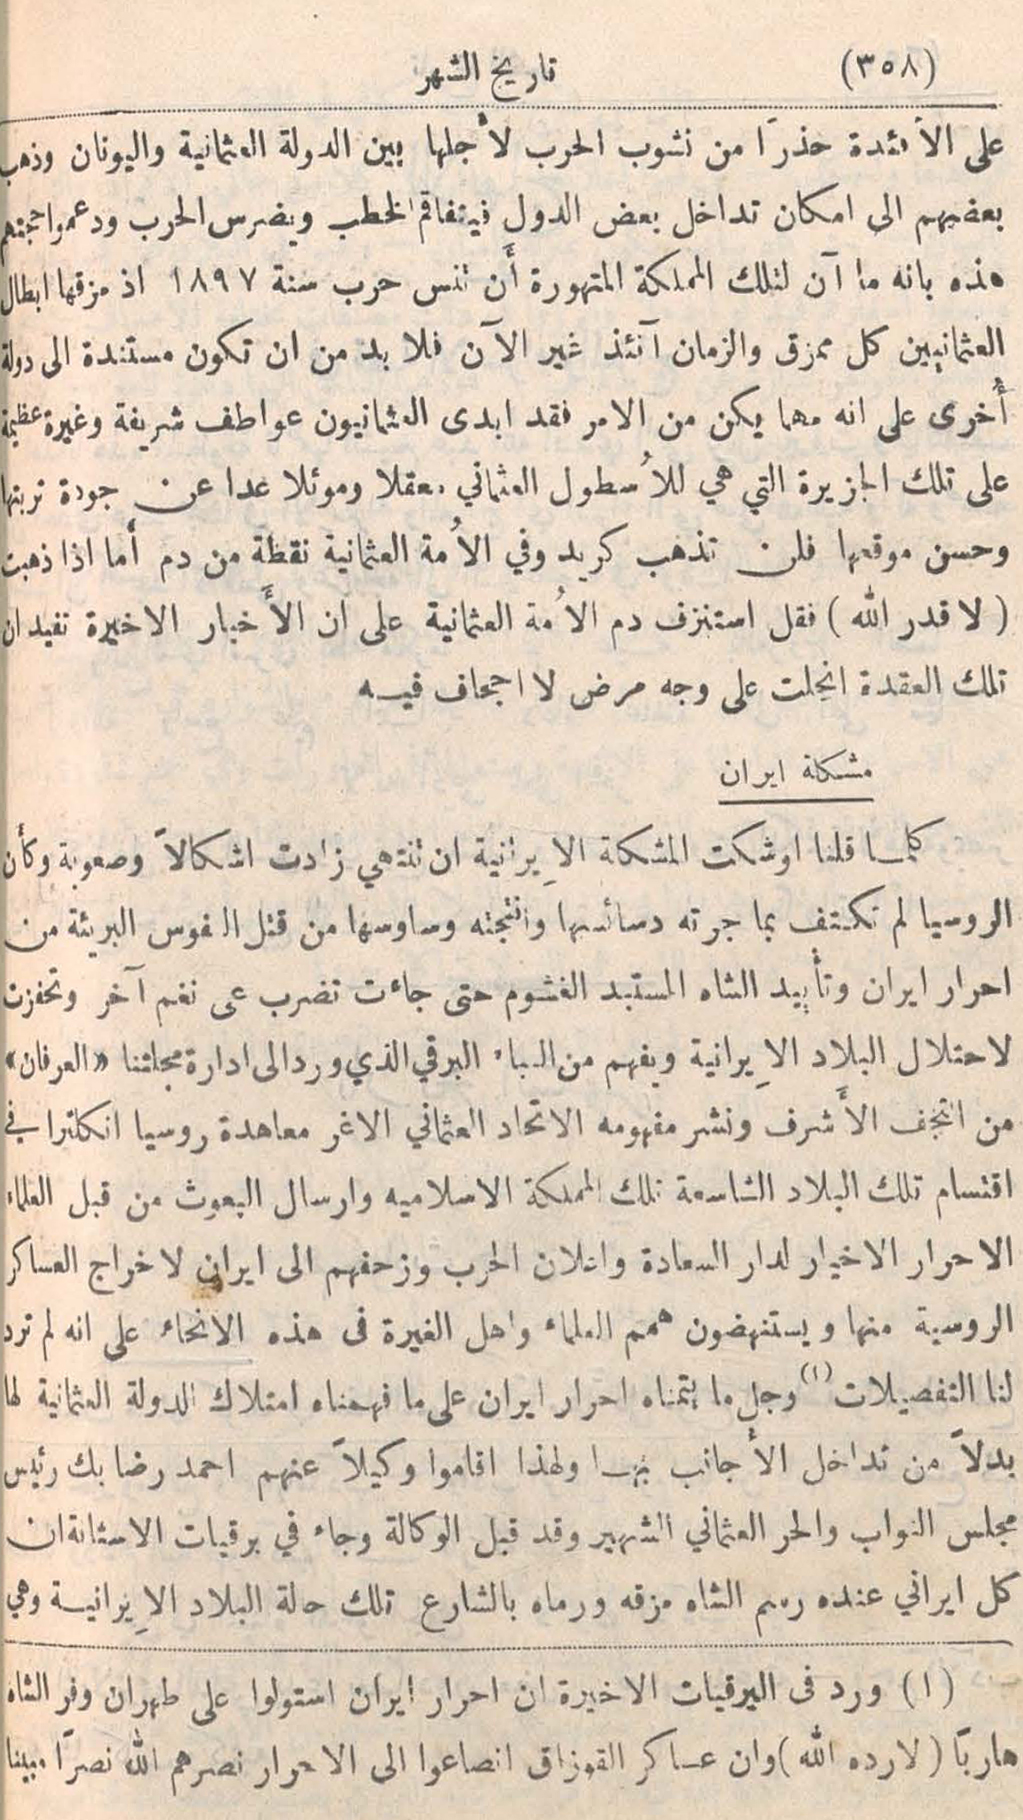 (٣٥٨) تاريخ الشهر
على الأفئدة حذرًا من نشوب الحرب لأجلها بين الدولة العثمانية واليونان وذهب
بعضهم الى امكان تداخل بعض الدول فيتفاقم الخطب ويضرس الحرب ودعموا حجتهم
هذه بانه ما آن لتلك المملكة المتهورة أن تنس حرب سنة ١٨٩٧ اذ مزقها ابطال
العثمانيين كل ممزق والزمان آنئذ غير الآن فلا بد من ان تكون مستندة الى دولة
أخرى على انه مهما يكن من الامر فقد ابدى العثمانيون عواطف شريفة وغيرة عظيمة
على تلك الجزيرة التي هي للأسطول العثماني معقلا وموئلا عدا عن جودة تربتها
وحسن موقعها فلن تذهب كريد وفي الأمة العثمانية نقطة من دم أما اذا ذهبت
(لا قدر الله) فقل استنزف دم الأمة العثمانية على ان الأخبار الاخيرة تفيد ان
تلك العقدة انحلت على وجه مرض لا اجحاف فيه
مشكلة ايران
كلما قلنا اوشكت المشكلة الإيرانية ان تنتهي زادت اشكالاً وصعوبة وكأن
الروسيا لم تكتف بما جرته دسائسها وانتجته وساوسها من قتل النفوس البريئة من
احرار ايران وتأييد الشاه المستبد الغشوم حتى جاءت تضرب عى نغم آخر وتحفزت
لاحتلال البلاد الإيرانية ويفهم من النباء البرقي الذي ورد الى ادارة مجلتنا «العرفان»
من النجف الأشرف ونشر مفهومه الاتحاد العثماني الاغر معاهدة روسيا انكلترا في
اقتسام تلك البلاد الشاسعة تلك المملكة الاسلاميه وارسال البعوث من قبل العلماء
الاحرار الاخيار لدار السعادة واعلان الحرب وزحفهم الى ايران لاخراج العساكر
الروسية منها ويستنهضون همم العلماء واهل الغيرة فى هذه الانحاء على انه لم ترد
لنا التفصيلات (١) وجل ما يتمناه احرار ايران على ما فهمناه امتلاك الدولة العثمانية لها
بدلاً من تداخل الأجانب بها ولهذا اقاموا وكيلاً عنهم احمد رضا بك رئيس
مجلس النواب والحر العثماني الشهير وقد قبل الوكالة وجاء في برقيات الاستانة ان
كل ايراني عنده رسم الشاه مزقه ورماه بالشارع تلك حالة البلاد الإيرانية وهي
(١) ورد فى البرقيات الاخيرة ان احرار ايران استولوا على طهران وفر الشاه
هاربًا (لا رده الله) وان عساكر القوزاق انصاعوا الى الاحرار نصرهم الله نصرًا مبينا